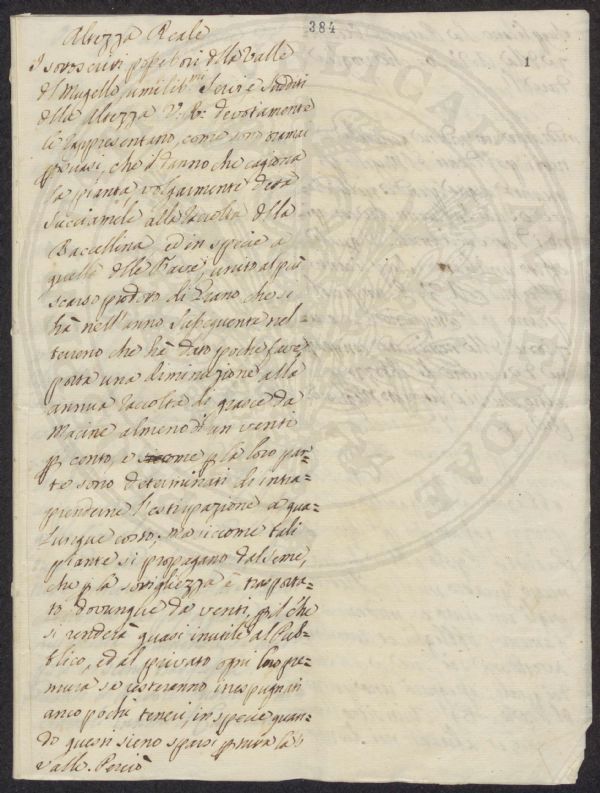 384
1
Altezza Reale
I sottoscritti popolari della Valle
del Mugello umilib.mi Servi e Sudditi
della Altezza V: R: devotamente
le rappresentano, come sono oramai
persuasi, che il danno che cagiona
la pianta volgarmente detta
Succiamele alla raccolta della
Baccellina, ed in specie a
quella delle Fave, unito al più
scarso prodotto di Grano, che si
hà nell'anno susseguente nel
terreno che hà dato poche fave,
porta una diminuzione alla
annua raccolta de grasce da
Macine almeno d'un venti
p cento, e siccome p la loro par=
te sono determinati di intra=
prenderne l'estirpazione a qua=
lunque costo, ma siccome tali
piante si propagano dal seme,
che p la sottigliezza è trasporta=
to dovunque da venti, p il che
si renderà quasi inutile al Pub=
blico, ed al privato ogni loro pre=
mura se resteranno inespugnati
anco pochi terreni, in specie quan=
do questi sieno sparsi p tutta la
Valle. Perciò